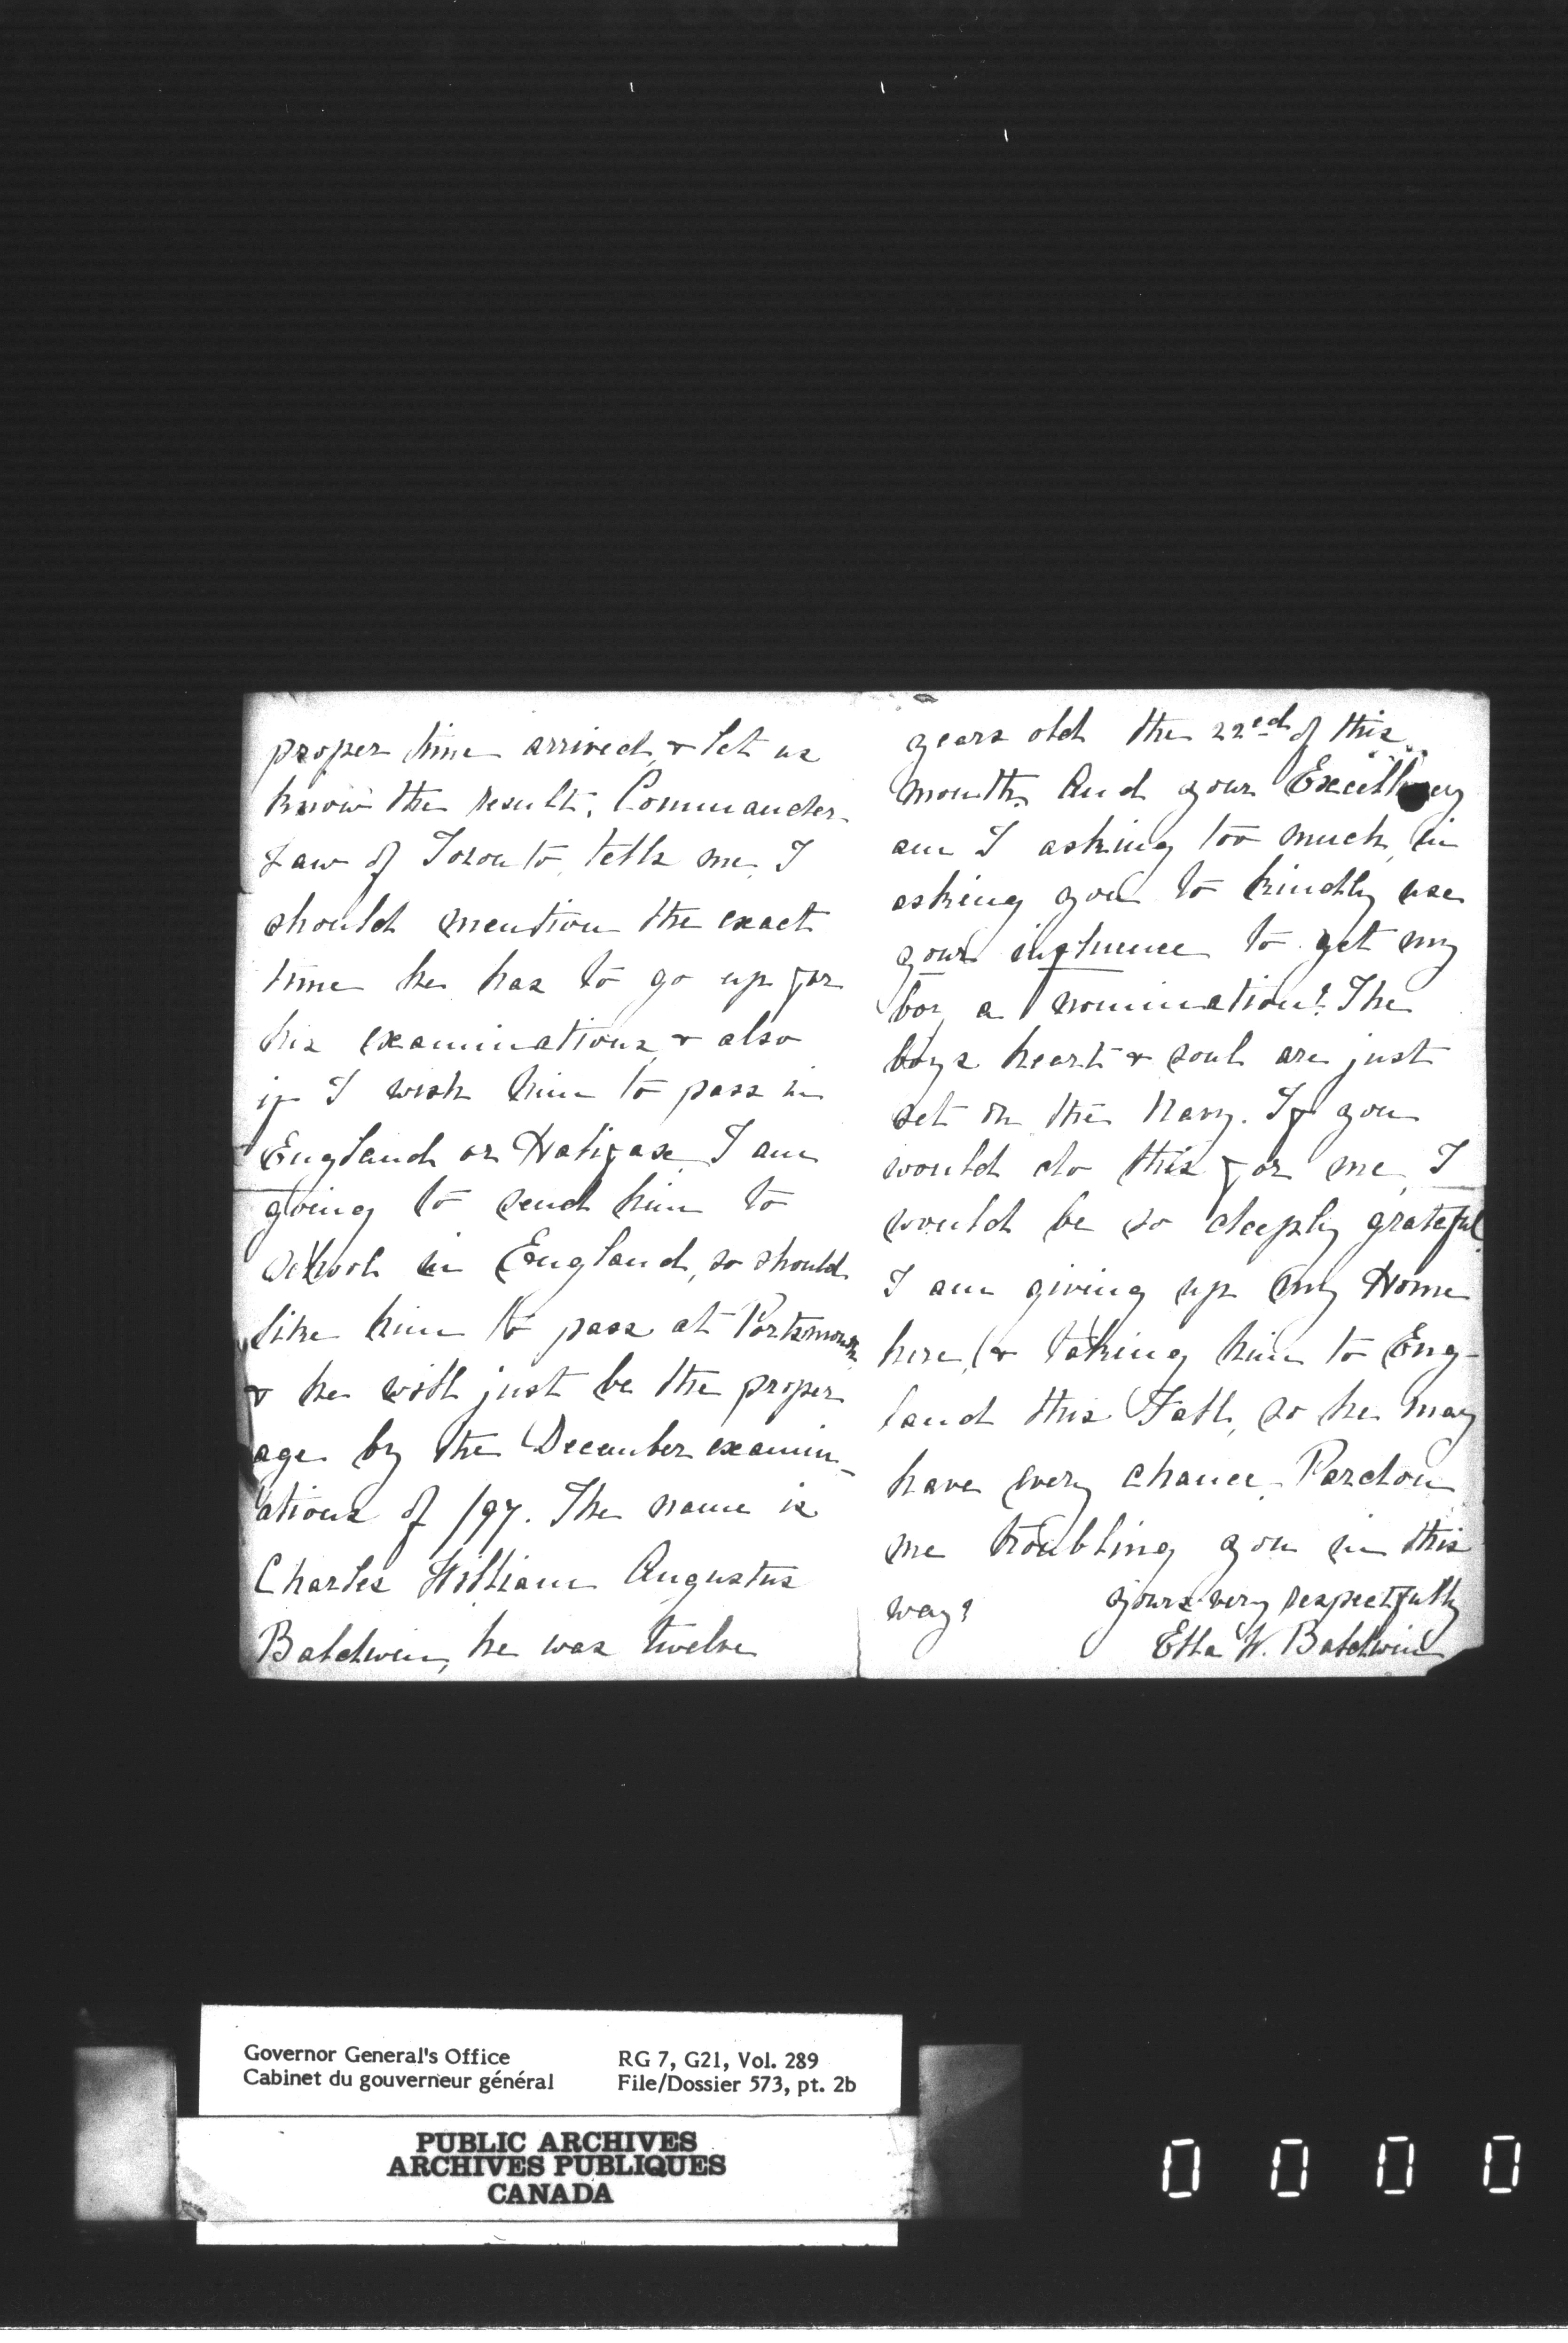 proper time arrived, & let us
know the result. Commander
Law of Toronto, tells me, I
should mention the exact
time he has to go up for
his examinations, & also
if I wish him to pass in
England or Halifax, I am
going to send him to
school in England, so should
like him to pass at Portsmouth
& he will just be the proper
age by the December examin-
ations of /97. The name is
Charles William Augustus
Baldwin, he was twelve
years old the 22ed of this
month. And your Excellency
am I asking too much, in
asking you to kindly use
your influence to get my
boy a nomination? The
boys heart & soul are just
set on the Navy. If you
would do this for me, I
would be so deeply grateful.
I am giving up my Home
here, & taking him to Eng-
land this Fall, so he may
have every chance. Pardon
me troubling you in this
way?
yours very respectfully
Etta W. Baldwin
Governor General's Office
Cabinet du gouverneur général
RG 7, G21, Vol. 289
File/Dossier 573, pt. 2b
PUBLIC ARCHIVES
ARCHIVES PUBLIQUES
CANADA
0 0 0 0